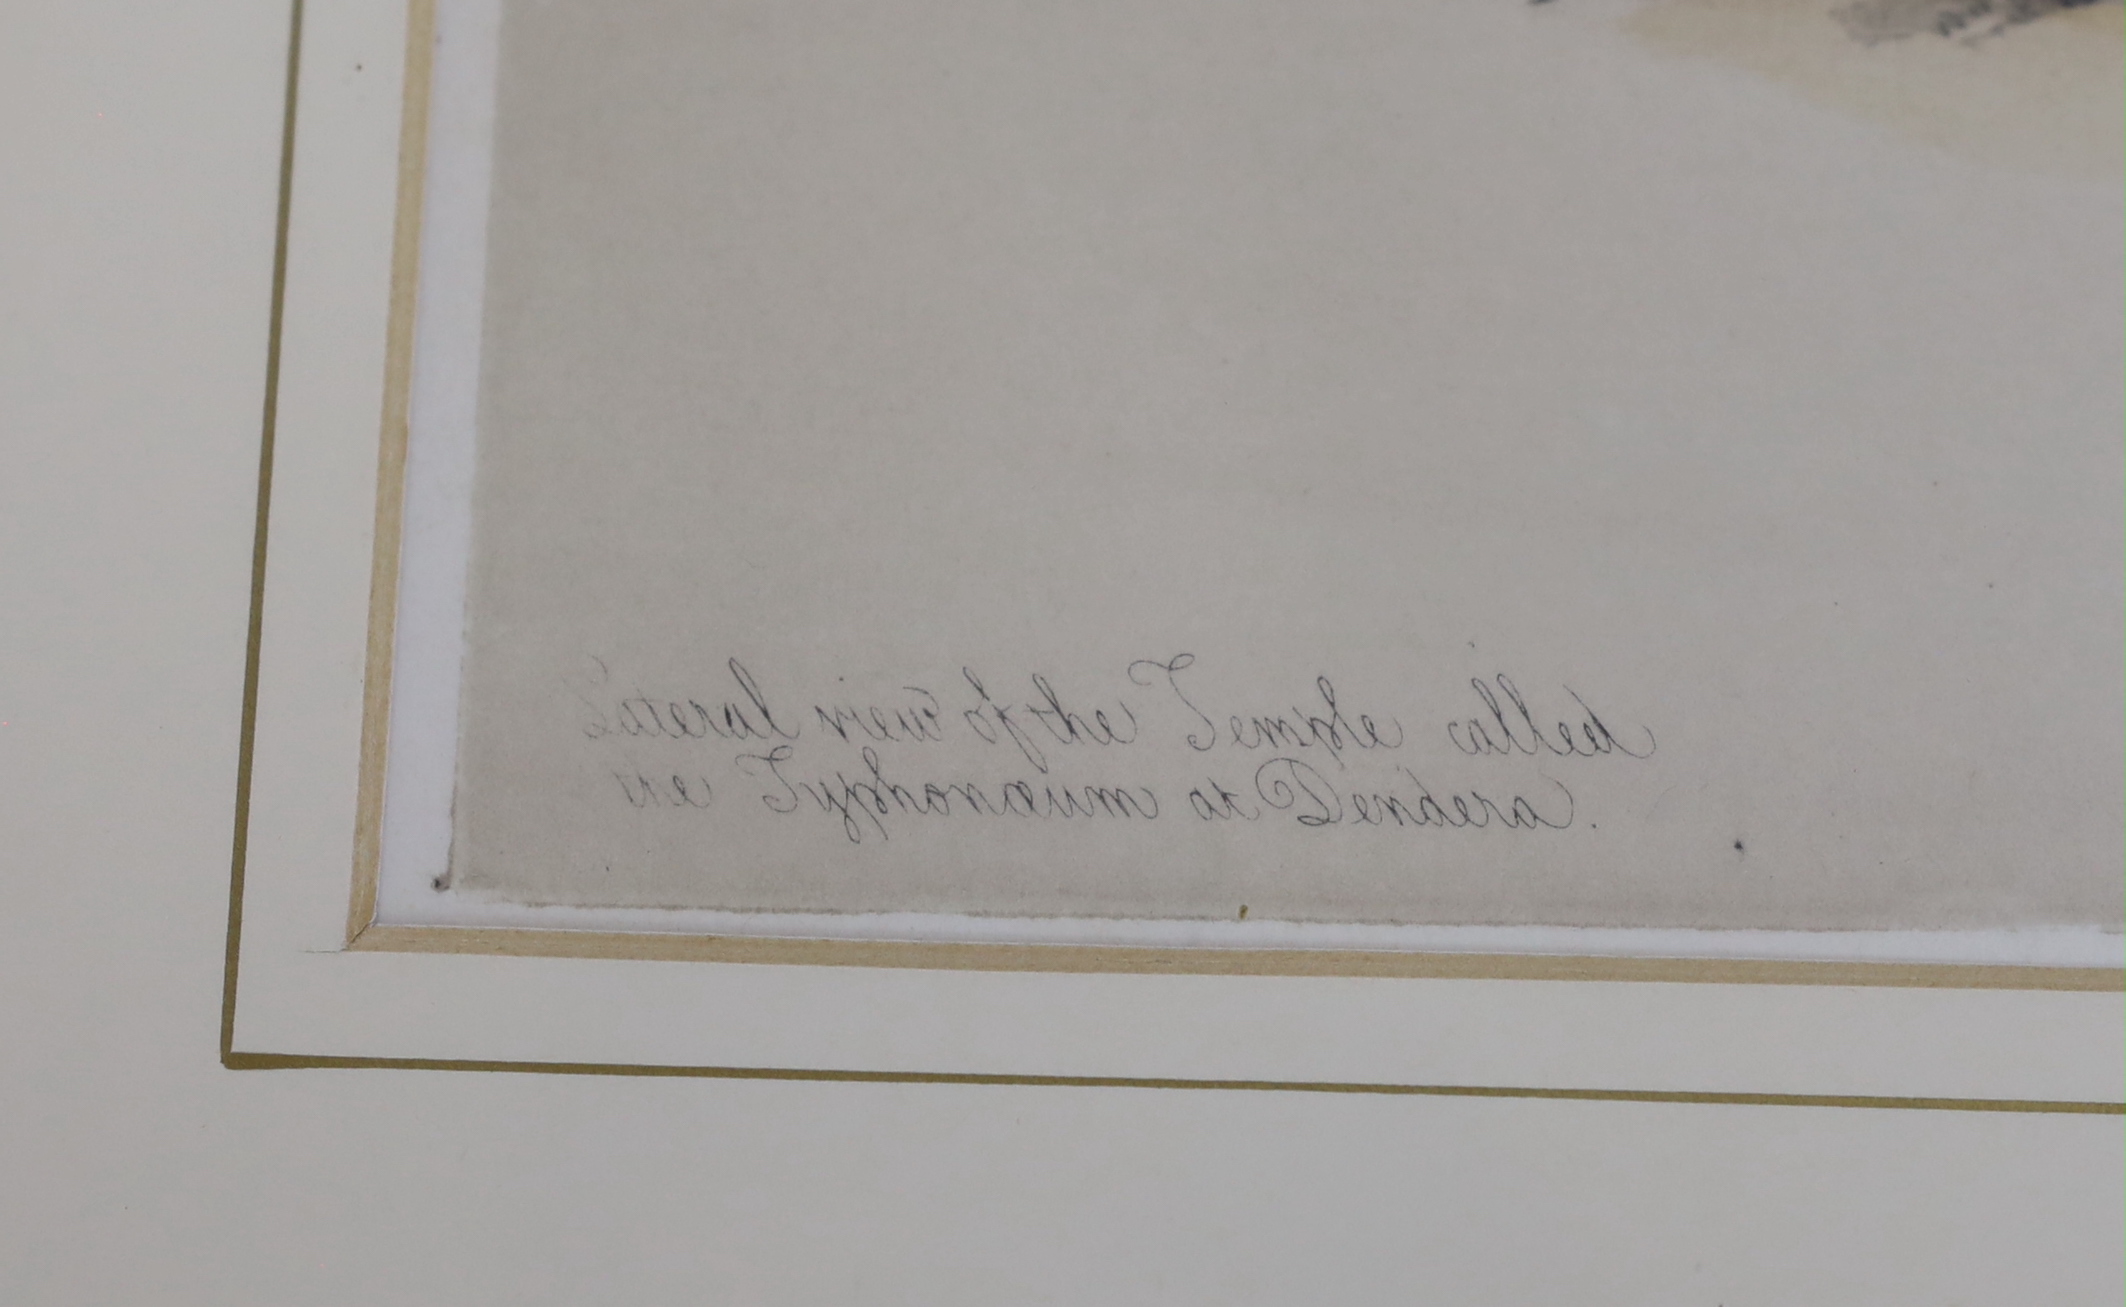 Lateral view of the Temple called
Typhonœum at Dendera.